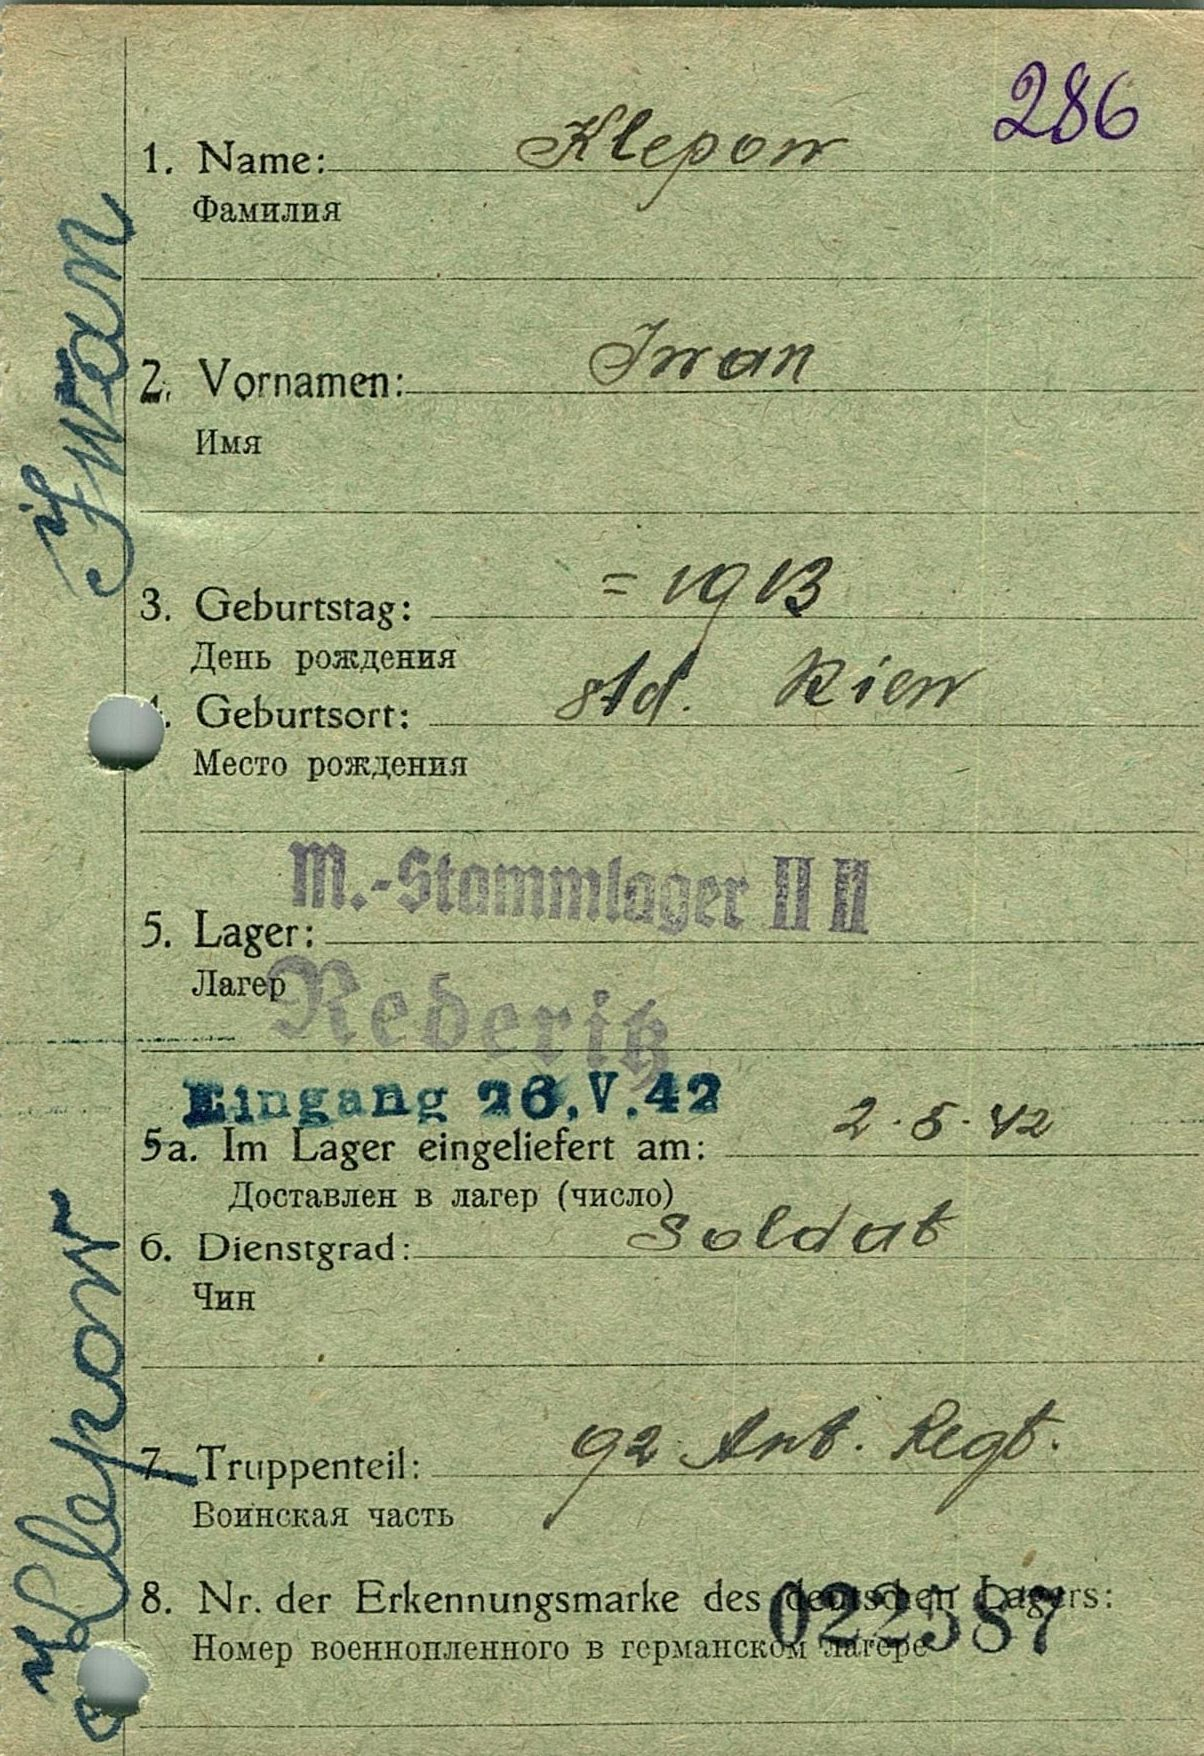 286
1. Name: Klepow
Фамилия
2. Vornamen: Iwan
Имя
3. Geburtstag: = 1913
День рождения
4. Geburtsort: std. Kiew
Место рождения
M.-Stammlager II H
5. Lager:
Лагер
Rederitz
Eingang 26.V.42
5a. Im Lager eingeliefert am: 2.5.42
Доставлен в лагер (число)
6. Dienstgrad: Soldat
Чин
7. Truppenteil: 92 Art. Regt.
Воинская часть
8. Nr. der Erkennungsmarke des deutschen Lagers:
022387
Номер военнопленного в германском лагере
Klepow Iwan